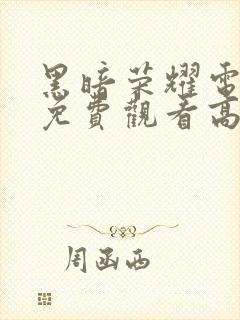 黑暗荣耀電
免費觀看高
周函西